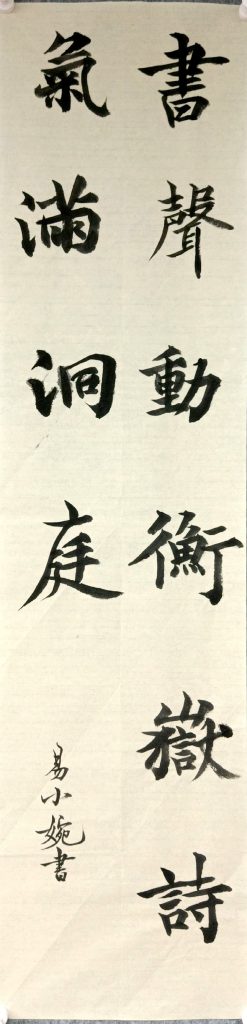 書聲動衡嶽詩
氣滿洞庭
易小婉書